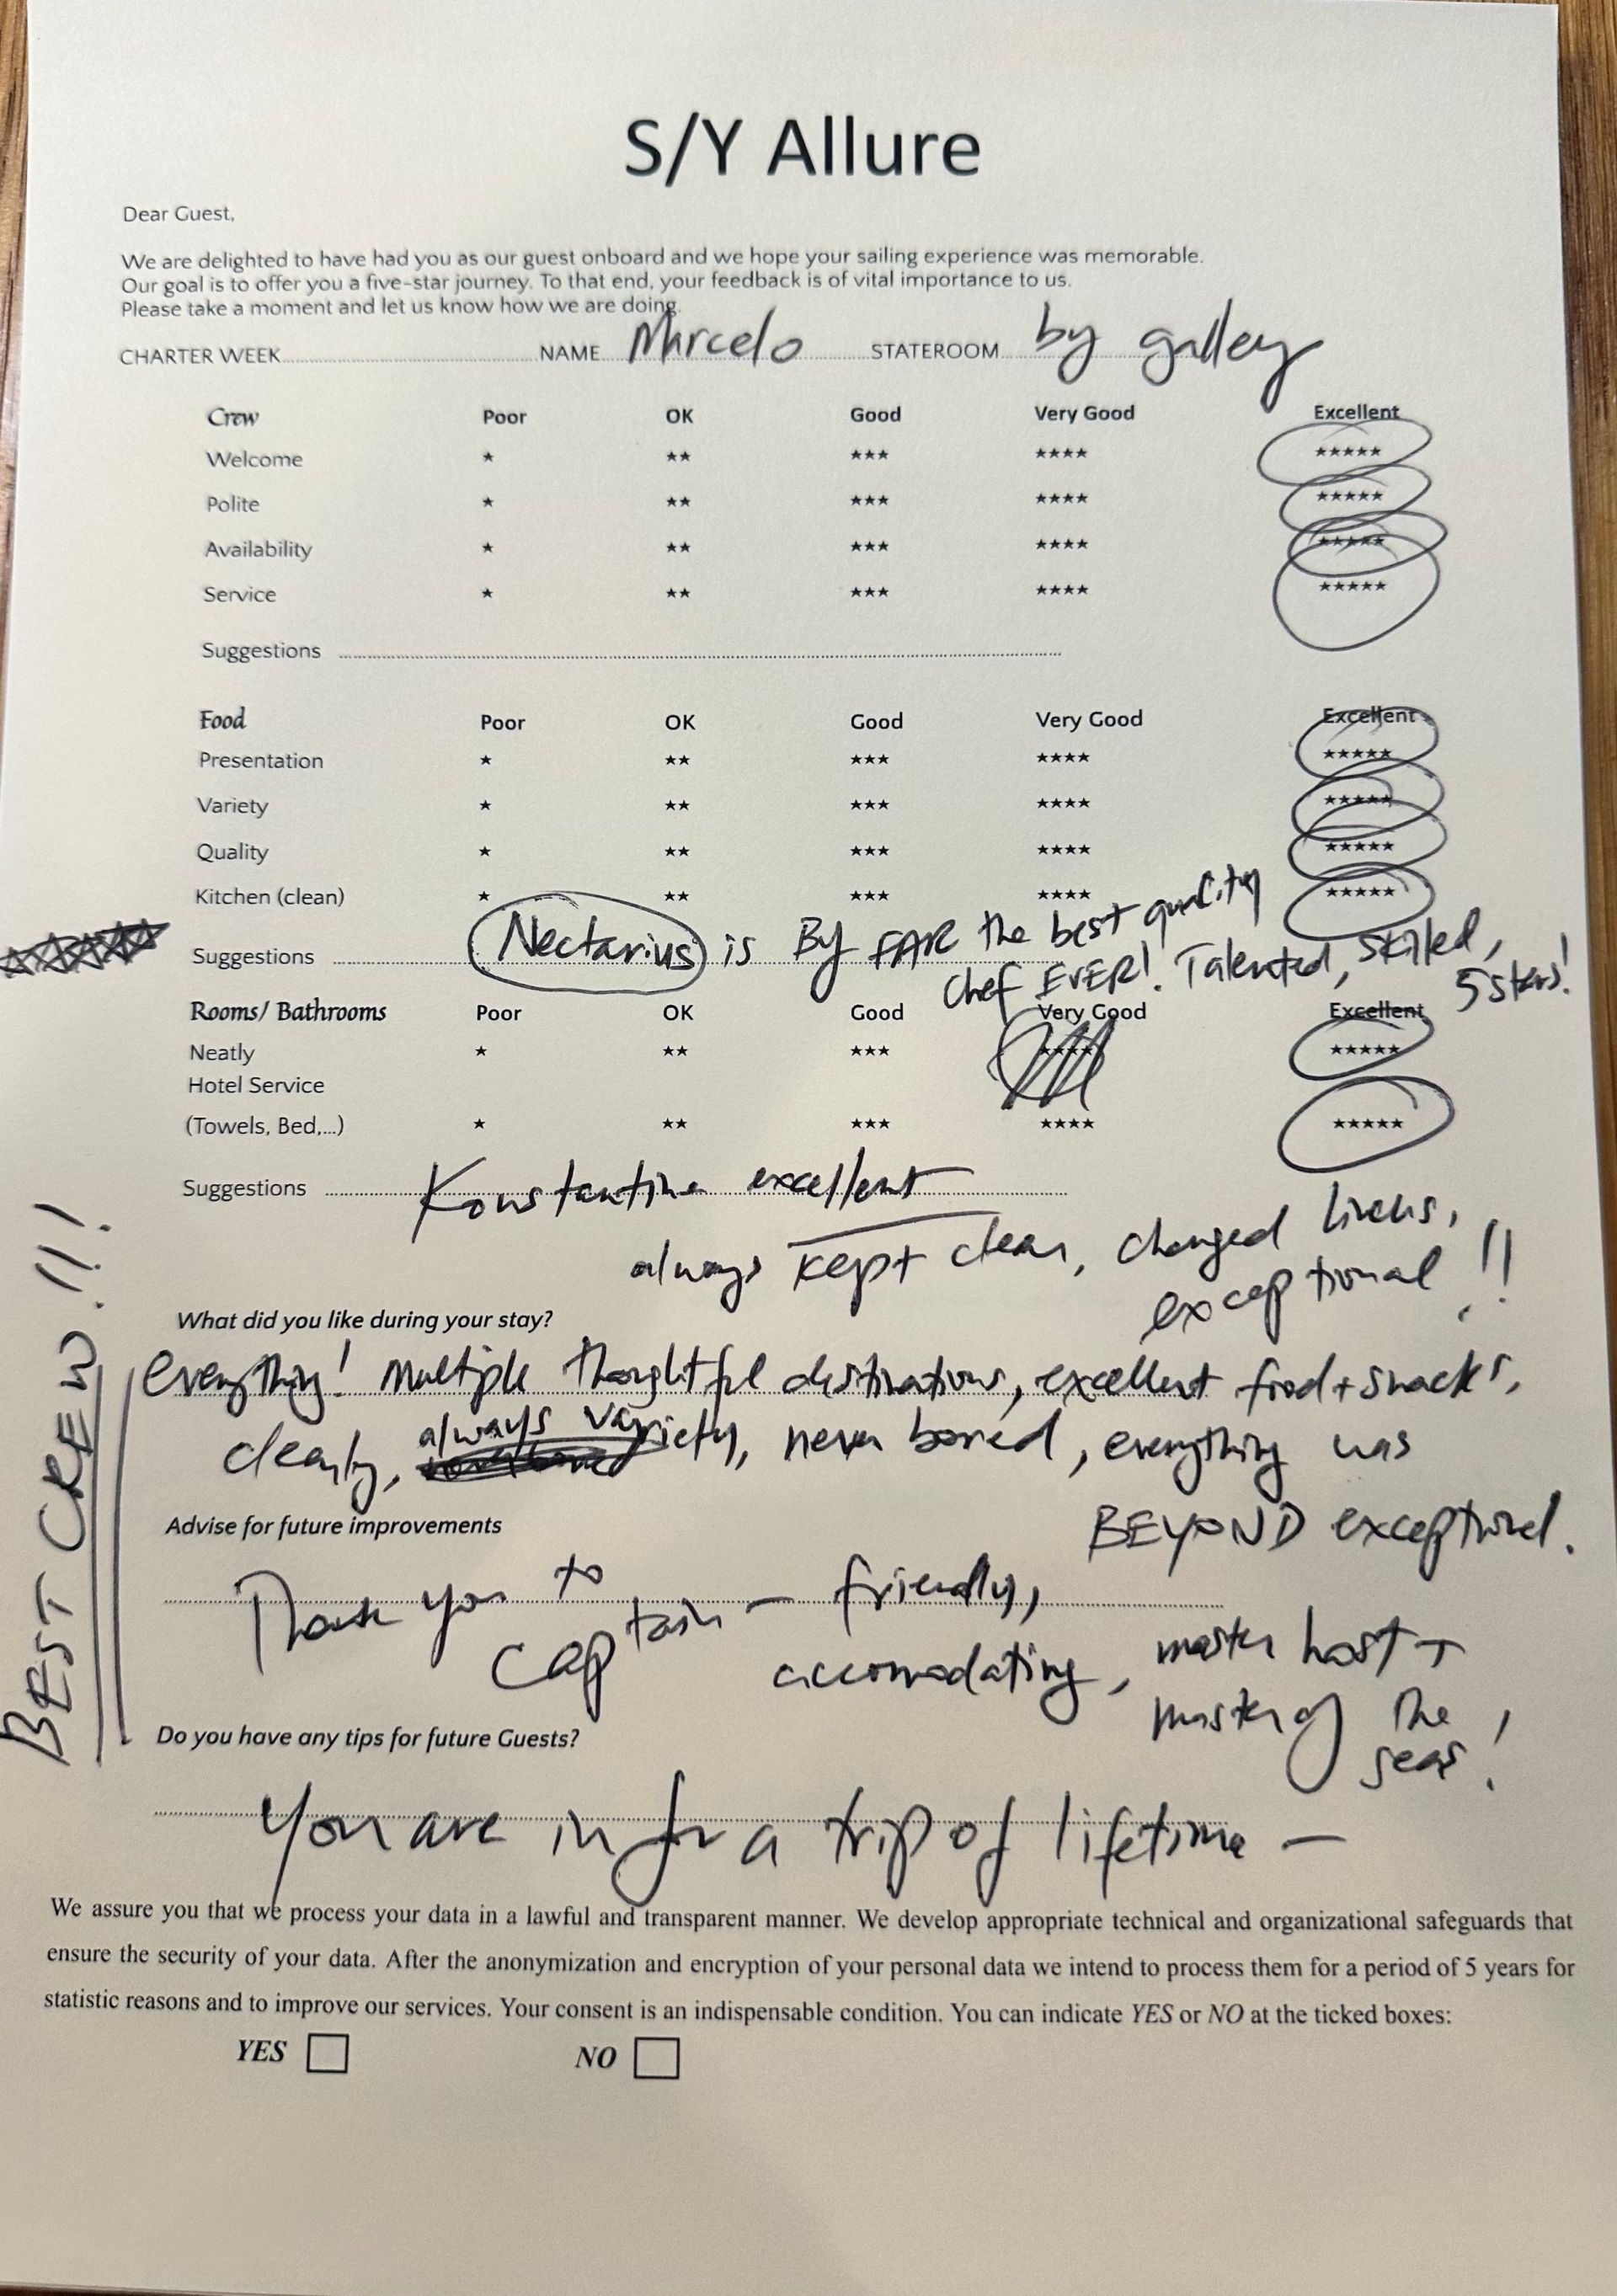 S/Y Allure
Dear Guest,
We are delighted to have had you as our guest onboard and we hope your sailing experience was memorable.
Our goal is to offer you a five-star journey. To that end, your feedback is of vital importance to us.
Please take a moment and let us know how we are doing.
CHARTER WEEK NAME Marcelo STATEROOM by galley
Crew Poor OK Good Very Good Excellent
Welcome ★ ★★ ★★★ ★★★★ ★★★★★
Polite ★ ★★ ★★★ ★★★★ ★★★★★
Availability ★ ★★ ★★★ ★★★★ ★★★★★
Service ★ ★★ ★★★ ★★★★ ★★★★★
Suggestions
Food Poor OK Good Very Good Excellent
Presentation ★ ★★ ★★★ ★★★★ ★★★★★
Variety ★ ★★ ★★★ ★★★★ ★★★★★
Quality ★ ★★ ★★★ ★★★★ ★★★★★
Kitchen (clean) ★ ★★ ★★★ ★★★★ ★★★★★
Suggestions Nectarius is By FAR the best quality
chef EVER! Talented, skilled,
5 stars!
Rooms/ Bathrooms Poor OK Good Very Good Excellent
Neatly ★ ★★ ★★★ ★★★★ ★★★★★
Hotel Service
(Towels, Bed,...) ★ ★★ ★★★ ★★★★ ★★★★★
Suggestions Konstantine excellent
always kept clean, changed linens,
exceptional!!
What did you like during your stay?
everything! Multiple thoughtful destinations, excellent food + snacks,
cleanly, always variety, never bored, everything was
BEYOND exceptional.
Advise for future improvements
Thank you to
Captain – friendly,
accomodating, master host +
master of the
seas!
Do you have any tips for future Guests?
You are in for a trip of lifetime –
BEST CREW!!!
We assure you that we process your data in a lawful and transparent manner. We develop appropriate technical and organizational safeguards that
ensure the security of your data. After the anonymization and encryption of your personal data we intend to process them for a period of 5 years for
statistic reasons and to improve our services. Your consent is an indispensable condition. You can indicate YES or NO at the ticked boxes:
YES NO